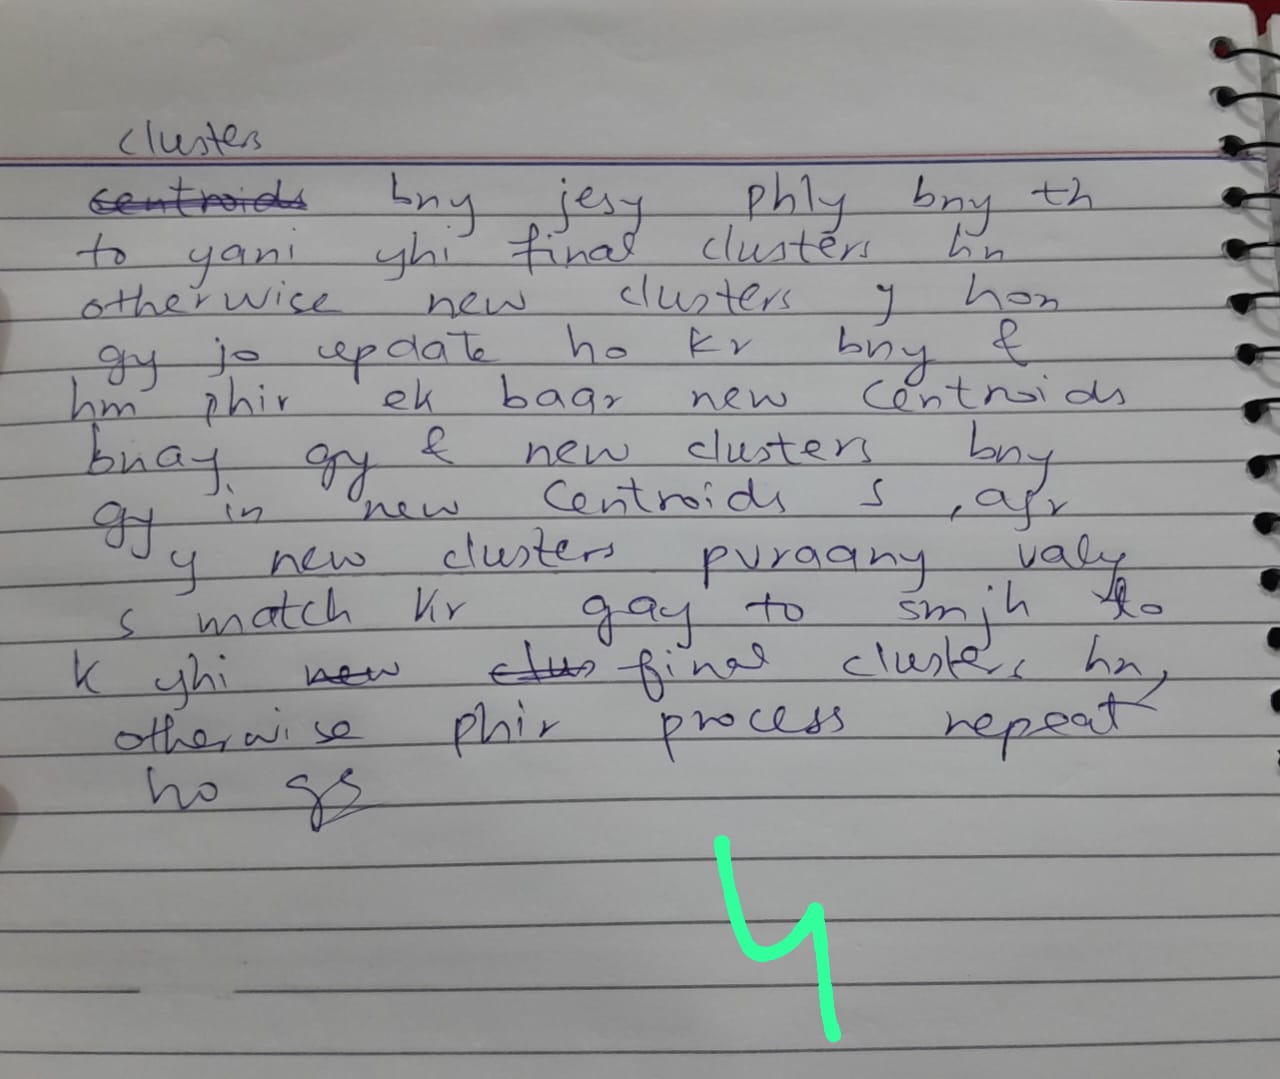 clusters
centroids bny jesy phly bny th
to yani yhi final clusters hn
otherwise new clusters y hon
gy jo update ho kr bny &
hm phir ek baar new centroids
bnay gy & new clusters bny
gy in new centroids s , agr
y new clusters puraany valy
s match kr gay to smjh lo
k yhi new clus final clusters hn,
otherwise phir process repeat
ho ga
4